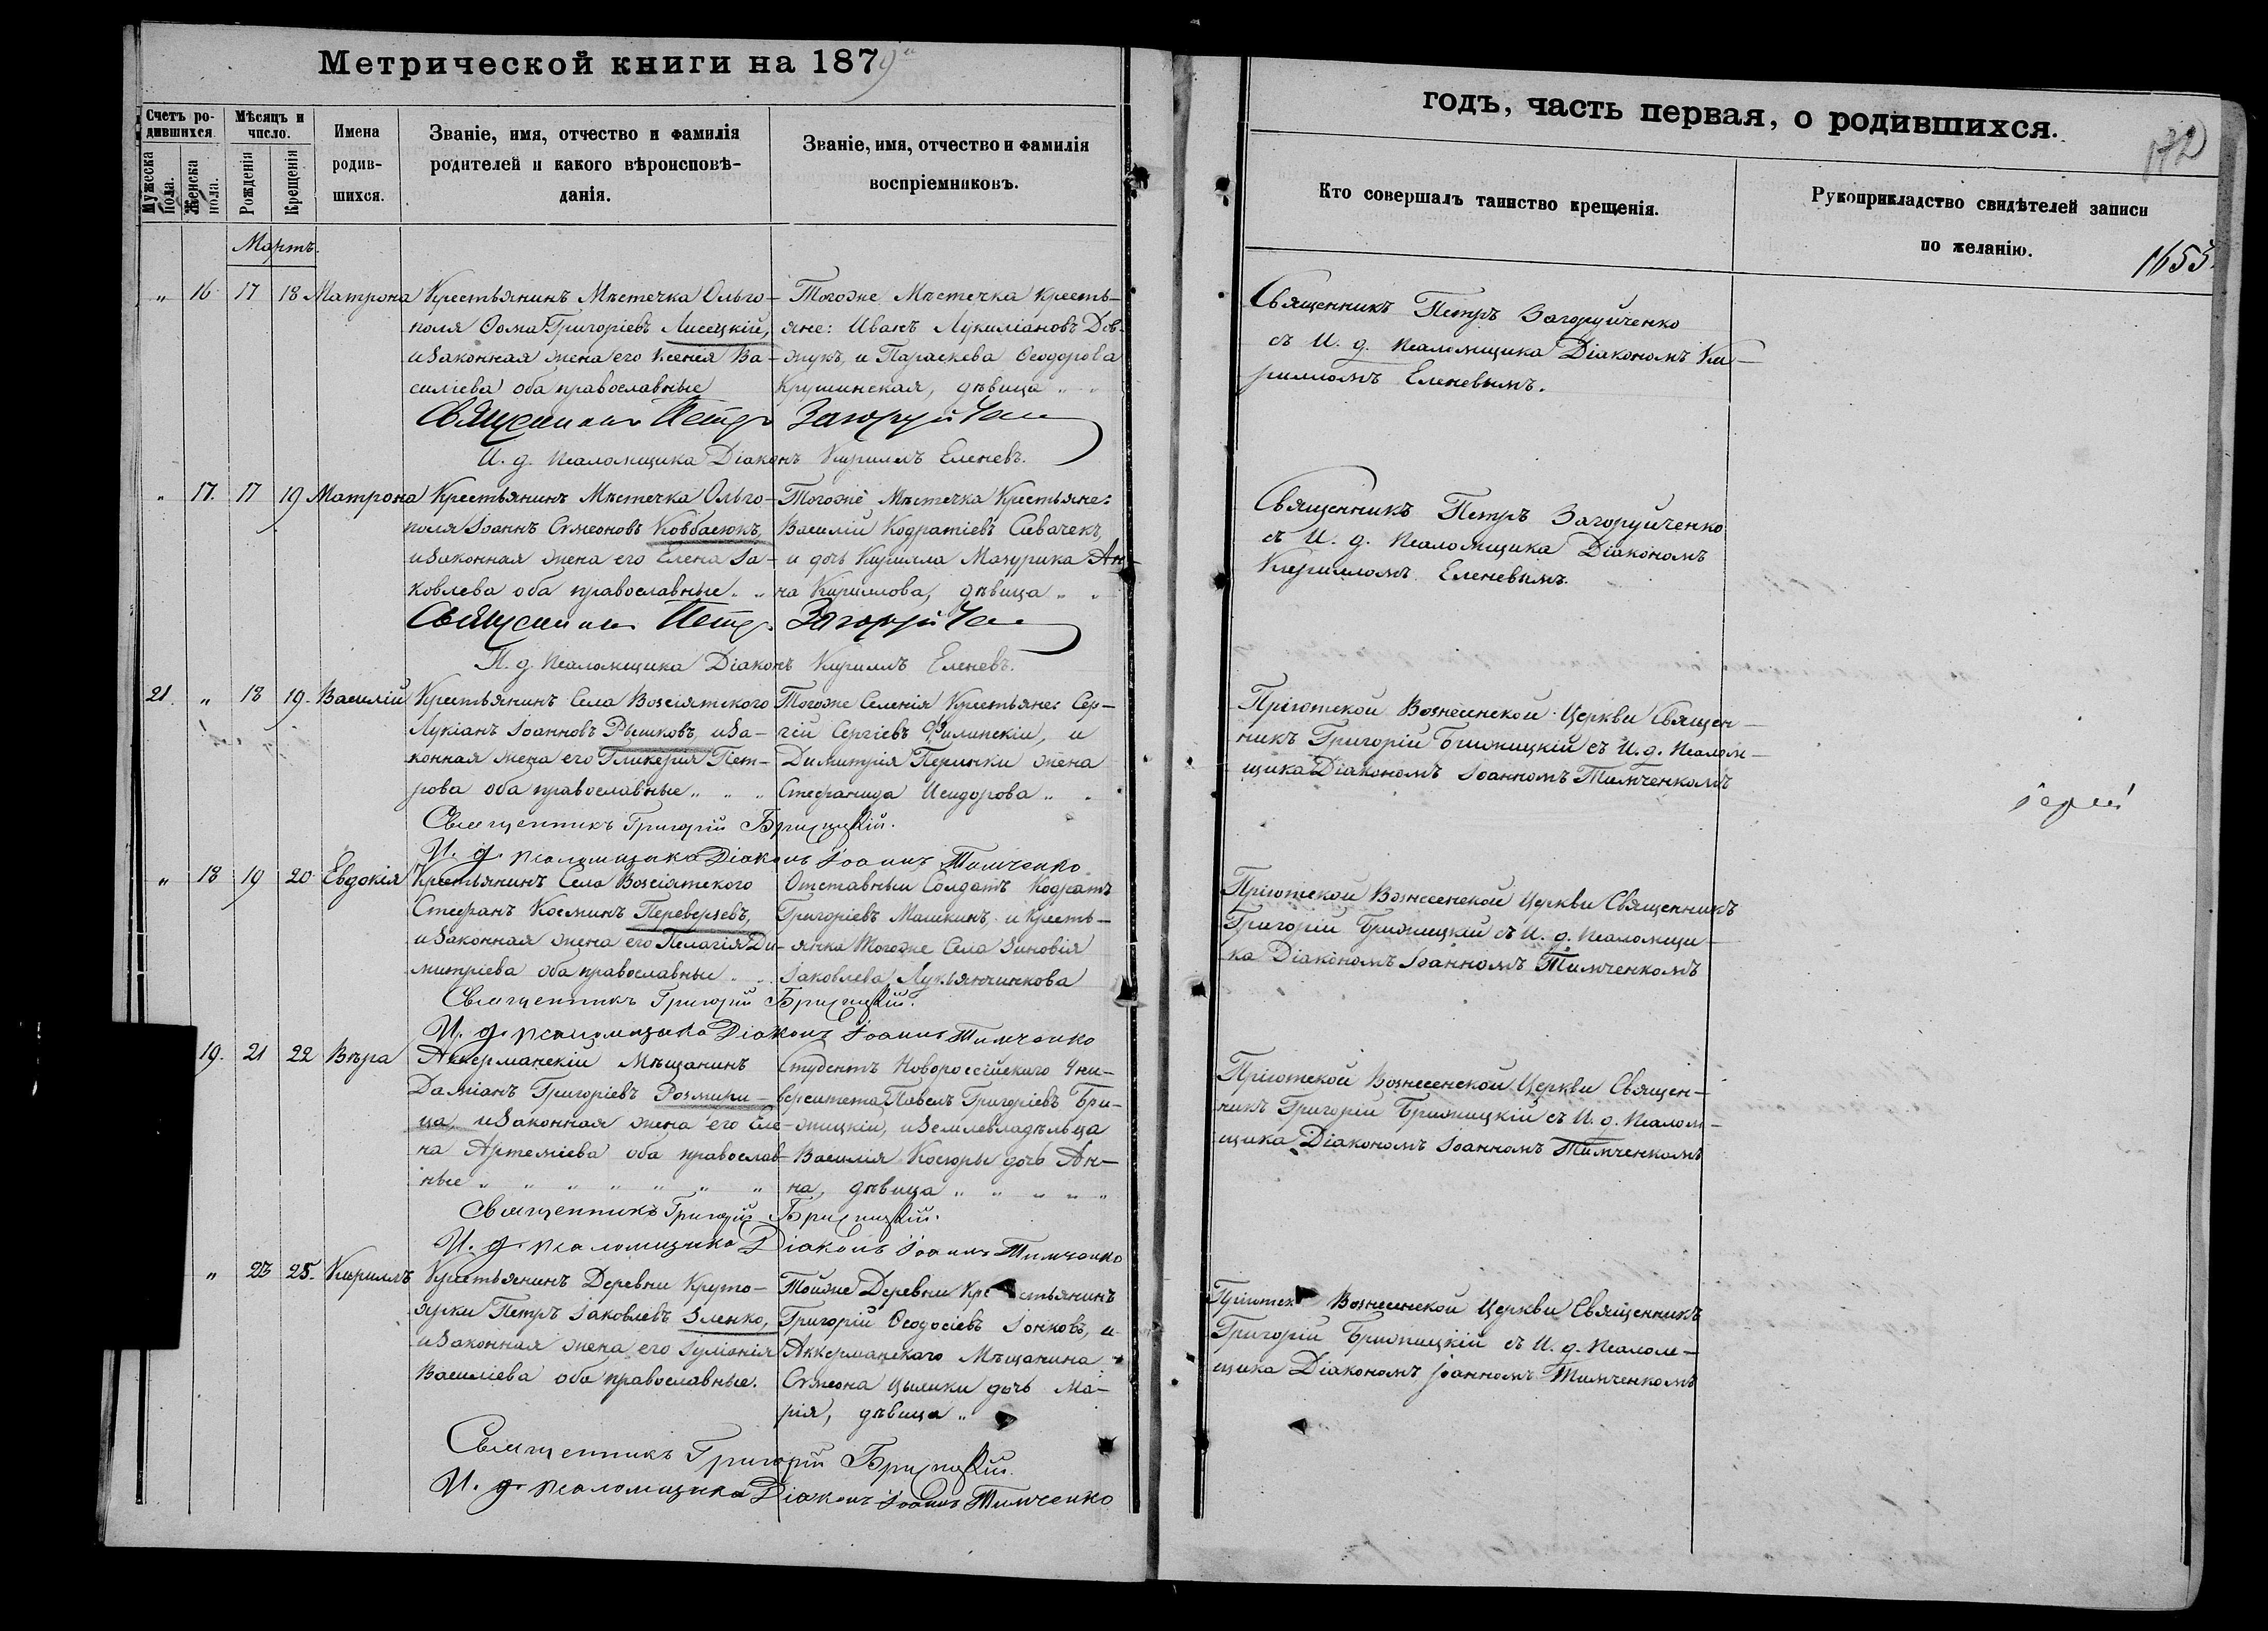 Метрической книги на 1879
годъ, часть первая, о родившихся.
1653
Счетъ ро-
дившихся.
Мужеска пола.
Женска пола.
Мѣсяцъ и
число.
Рожденія
Крещенія
Имена
родив-
шихся.
Званіе, имя, отчество и фамилія
родителей и какого вѣроисповѣ-
данія.
Званіе, имя, отчество и фамилія
воспріемниковъ.
Кто совершалъ таинство крещенія.
Рукоприкладство свидѣтелей записи
по желанію.
Мартъ.
„ 16 17 18 Матрона
Крестьянинъ Мѣстечка Ольго-
поля Ѳома Григоріевъ Лисецкій,
и Законная жена его Ксенія Ва-
силіева оба православные
Тогоже Мѣстечка кресть-
яне: Иванъ Лукиліановъ Дов-
жукъ, и Параскева Ѳеодорова
Крушинская, дѣвица „ „
Священникъ Петръ Загоруйченко
съ И. д. псаломщика Діакономъ Ки-
рилломъ Еленевымъ.
Священникъ Петръ Загоруйченко
И. д. псаломщика Діаконъ Кириллъ Еленевъ.
„ 17. 17 19 Матрона
Крестьянинъ Мѣстечка Ольго-
поля Іоаннъ Сѵмеоновъ Ковбасюкъ,
и Законная жена его Елена Іа-
ковлева оба православные. „
Тогоже Мѣстечка Крестьяне:
Василій Кодратіевъ Сивачекъ,
и дочь Кирилла Мазурика Ан-
на Кириллова, дѣвица „ „
Священникъ Петръ Загоруйченко
съ И. д. псаломщика Діакономъ
Кирилломъ Еленевымъ.
Священникъ Петръ Загоруйченко
И. д. псаломщика Діаконъ Кириллъ Еленевъ.
21. „ 18 19. Василій
Крестьянинъ Села Возсіятского
Лукіанъ Іоанновъ Рышковъ, и За-
конная жена его Гликерія Пет-
рова оба православные „ „ „
Тогоже Селенія Крестьяне: Сер-
гій Сергіевъ Филипскій, и
Димитрія Перинки жена
Стефанида Исидорова „ „
Пріютской Вознесенской Церкви Священ-
никъ Григорій Брижицкій съ И. д. псалом-
щика Діакономъ Іоанномъ Тимченкомъ
Священникъ Григорій Брижицкій.
И. д. псаломщика Діаконъ Іоаннъ Тимченко
„ 18 19 20 Евдокія
Крестьянинъ Села Возсіятского
Стефанъ Косминъ Переверзевъ,
и Законная жена его Пелагія Ди-
митріева оба православные „ „
Отставный Солдатъ Кодратъ
Григоріевъ Машкинъ, и кресть-
янка тогоже Села Зиновія
Іаковлева Лукьянчикова
Пріютской Вознесенской Церкви Священникъ
Григорій Брижицкій съ И. д. псаломщи-
ка Діакономъ Іоанномъ Тимченкомъ
Священникъ Григорій Брижицкій.
И. д. псаломщика Діаконъ Іоаннъ Тимченко
19. 21 22 Вѣра
Аккерманскій Мѣщанинъ
Даміанъ Григоріевъ Розмири-
ца, и Законная жена его Еле-
на Артеміева оба православ-
ные „ „ „ „ „ „ „
Студентъ Новороссійскиго Уни-
верситета Павелъ Григоріевъ Бри-
жицкій, и Землевладѣльца
Василія Косюры дочь Ан-
на, дѣвица „ „ „ „ „
Пріютской Вознесенской Церкви Священ-
никъ Григорій Брижицкій съ И. д. псалом-
щика Діакономъ Іоанномъ Тимченкомъ
Священникъ Григорій Брижицкій.
И. д. псаломщика Діаконъ Іоаннъ Тимченко
„ 23 25. Кириллъ
Крестьянинъ Деревни Круто-
ярки Петръ Іаковлевъ Зленко,
и Законная жена его Іуліанія
Василіева оба православные.
Тойже Деревни Крестьянинъ
Григорій Ѳеодосіевъ Іонковъ, и
Аккерманскаго Мѣщанина
Сѵмеона Цылики дочь Ма-
рія, дѣвица „
Пріютск Вознесенской Церкви Священникъ
Григорій Брижицкій съ И. д. псалом-
щика Діакономъ Іоанномъ Тимченкомъ
Священникъ Григорій Брижицкій.
И. д. псаломщика Діаконъ Іоаннъ Тимченко